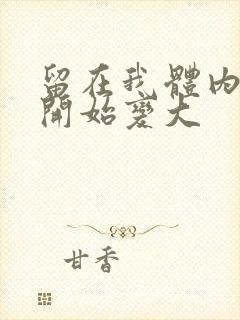 留在我體内
開始變大
甘香